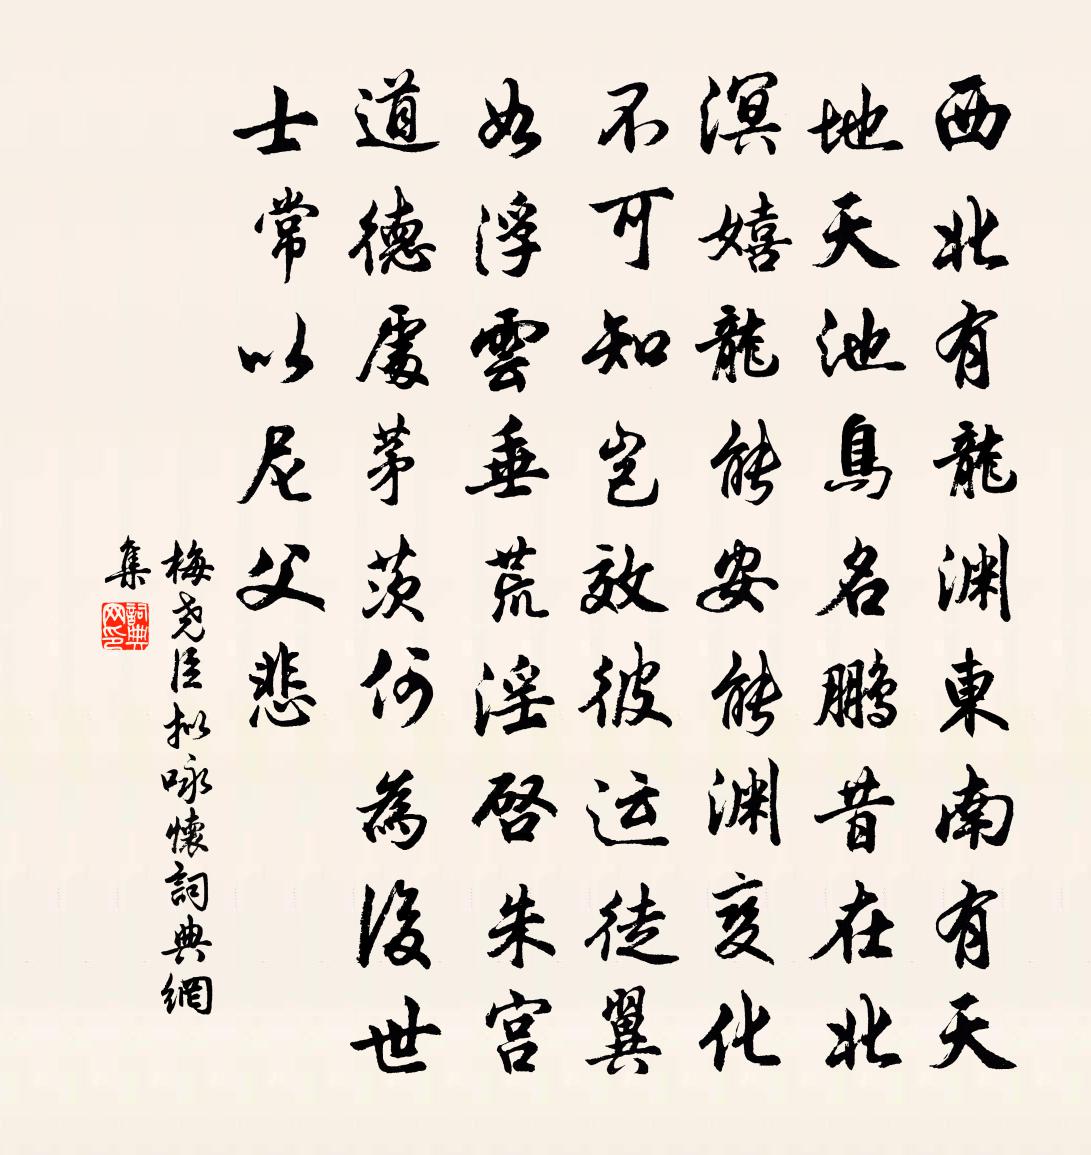 西北有龍淵東南有天
地天池鳥名鵬昔在北
溟嬉龍能安能淵变化
不可知岂效彼运徒翼
如浮雲垂荒淫啓朱宫
道德處茅茨何為後世
士常以尼父悲
梅尧臣拟咏懷詞典網
集
詞典
网印